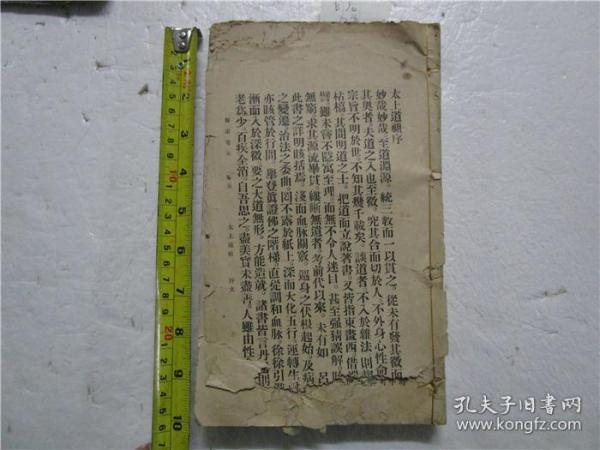 太上道祖序
妙哉妙哉至道淵源統三敎而一以貫之從未有發其微而
其奧者夫道之入也至微究其合而切於人不外身心性
宗旨不明於世不知其幾千載矣談道者不入於雜法則
枯槁其間明道之士把道而立說著書又皆指東畫西借
雖未嘗不隱寓至理而無不令人迷目甚至強猜誤解
無窮求其源流畢貫纖晰無遺者考前代以來未有如 呂
此書之詳明賅括焉淺而血脉關竅週身之伏根起始及病
之變遷治法之委曲罔不露於紙上深而大化五行運轉生
亦賅管於行間畢登眞證佛之階梯直從調和血脉徐徐引
漸而入於深微要之大道無形方能造就諸書皆言丹
老爲少百疾全消自吾思之盡美實未盡善人雖由性
太上道祖 序文
孔夫子旧书网
www.kongfz.com